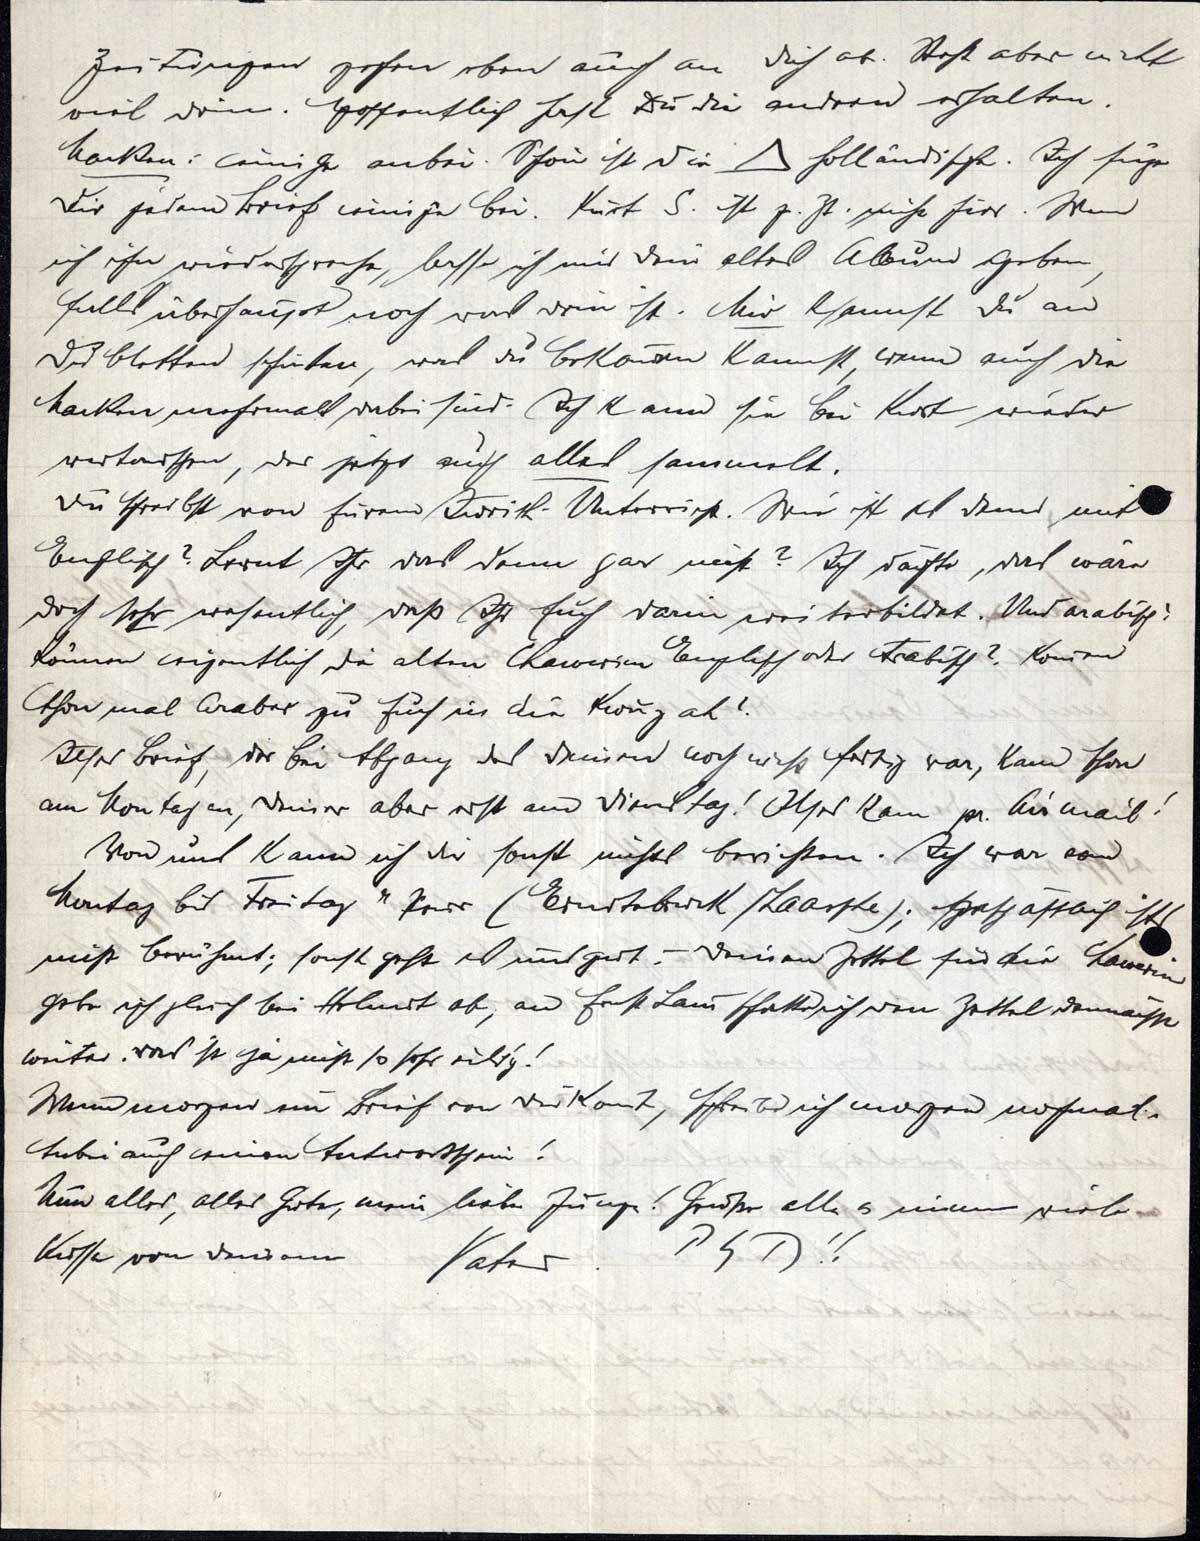 Zeitungen gehen eben auch an Dich ab. Steht aber nicht
viel drin. Hoffentlich hast Du die anderen erhalten.
Marken: einige anbei. Schön ist die △ holländische. Ich füge
Dir jedem Brief einige bei. Kurt S. ist z. Zt. nicht hier. Wenn
ich ihn wiederspreche, lasse ich mir Dein altes Album geben,
falls überhaupt noch was drin ist. Mir kannst Du an
schicken, was du bekommen kannst, wenn auch die
Marken mehrmals dabei sind. Ich kann sie bei Kurt wieder
vertauschen, der jetzt auch alles sammelt.
Du schreibst von Eurem Iwrith-Unterricht. Wie ist es denn mit
Englisch? Lernt Ihr das denn gar nicht? Ich dächte, das wäre
doch sehr wesentlich, daß Ihr Euch darin weiterbildet. Und arabisch?
Können eigentlich die alten Chawerim Englisch oder Arabisch? Kommen
schon mal Araber zu Euch in die Kwuzah?
Ilses Brief, der bei Abgang des deinen noch nicht fertig war, kam schon
am Montag an, Deiner aber erst am Dienstag! Ilses kam pr. Airmail!
Von uns kann ich dir sonst nichts berichten. Ich war von
Montag bis Freitag (Ernstebrück/Laasphe); geschäftlich ists
nicht berühmt; sonst geht es uns gut. – Deinen Zettel für die Chawerim
gebe ich gleich bei Helmut ab, an Ernst Lam schicke ich den Zettel demnächst
weiter. Das ist ja nicht so sehr eilig!
Wenn morgen ein Brief von Dir kommt, schreibe ich morgen nochmal.
Anbei auch einen Antwortschein!
Nun alles, alles Gute, mein lieber Junge! Grüße alle s innen viele
Küsse von Deinem Vater.